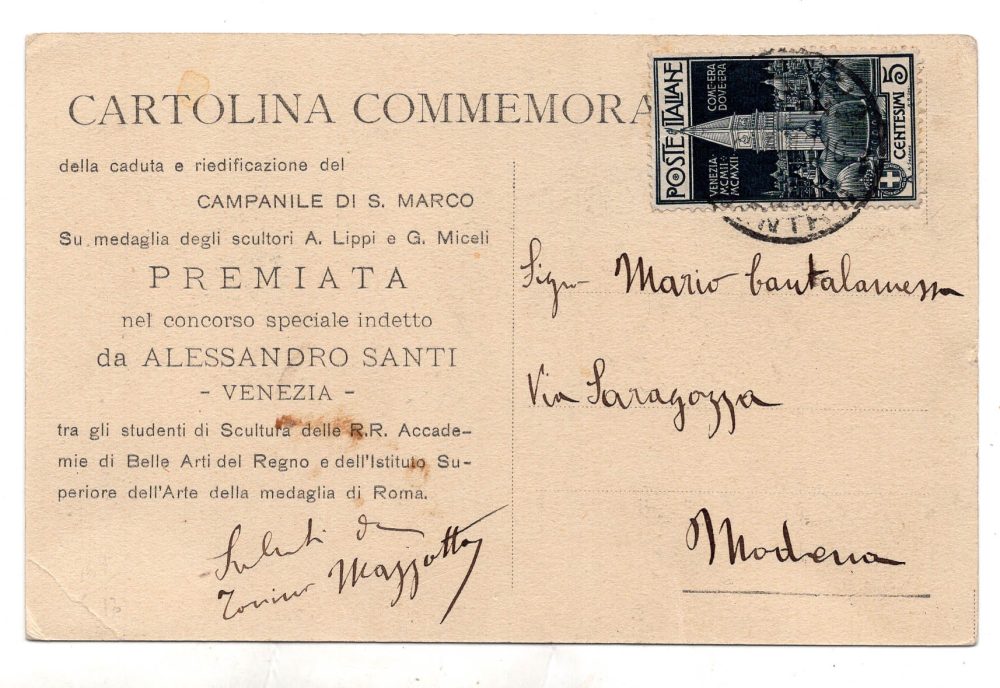 CARTOLINA COMMEMORA
della caduta e riedificazione del
CAMPANILE DI S. MARCO
Su medaglia degli scultori A. Lippi e G. Miceli
PREMIATA
nel concorso speciale indetto
da ALESSANDRO SANTI
- VENEZIA -
tra gli studenti di Scultura delle R.R. Accade-
mie di Belle Arti del Regno e dell'Istituto Su-
periore dell'Arte della medaglia di Roma.
Saluti da
Tonino Mazzotto
POSTE ITALIANE
VENEZIA
MCMII
MCMXII
COM'ERA
DOV'ERA
CENTESIMI 5
Sigr Mario Cantalamessa
Via Saragozza
Modena